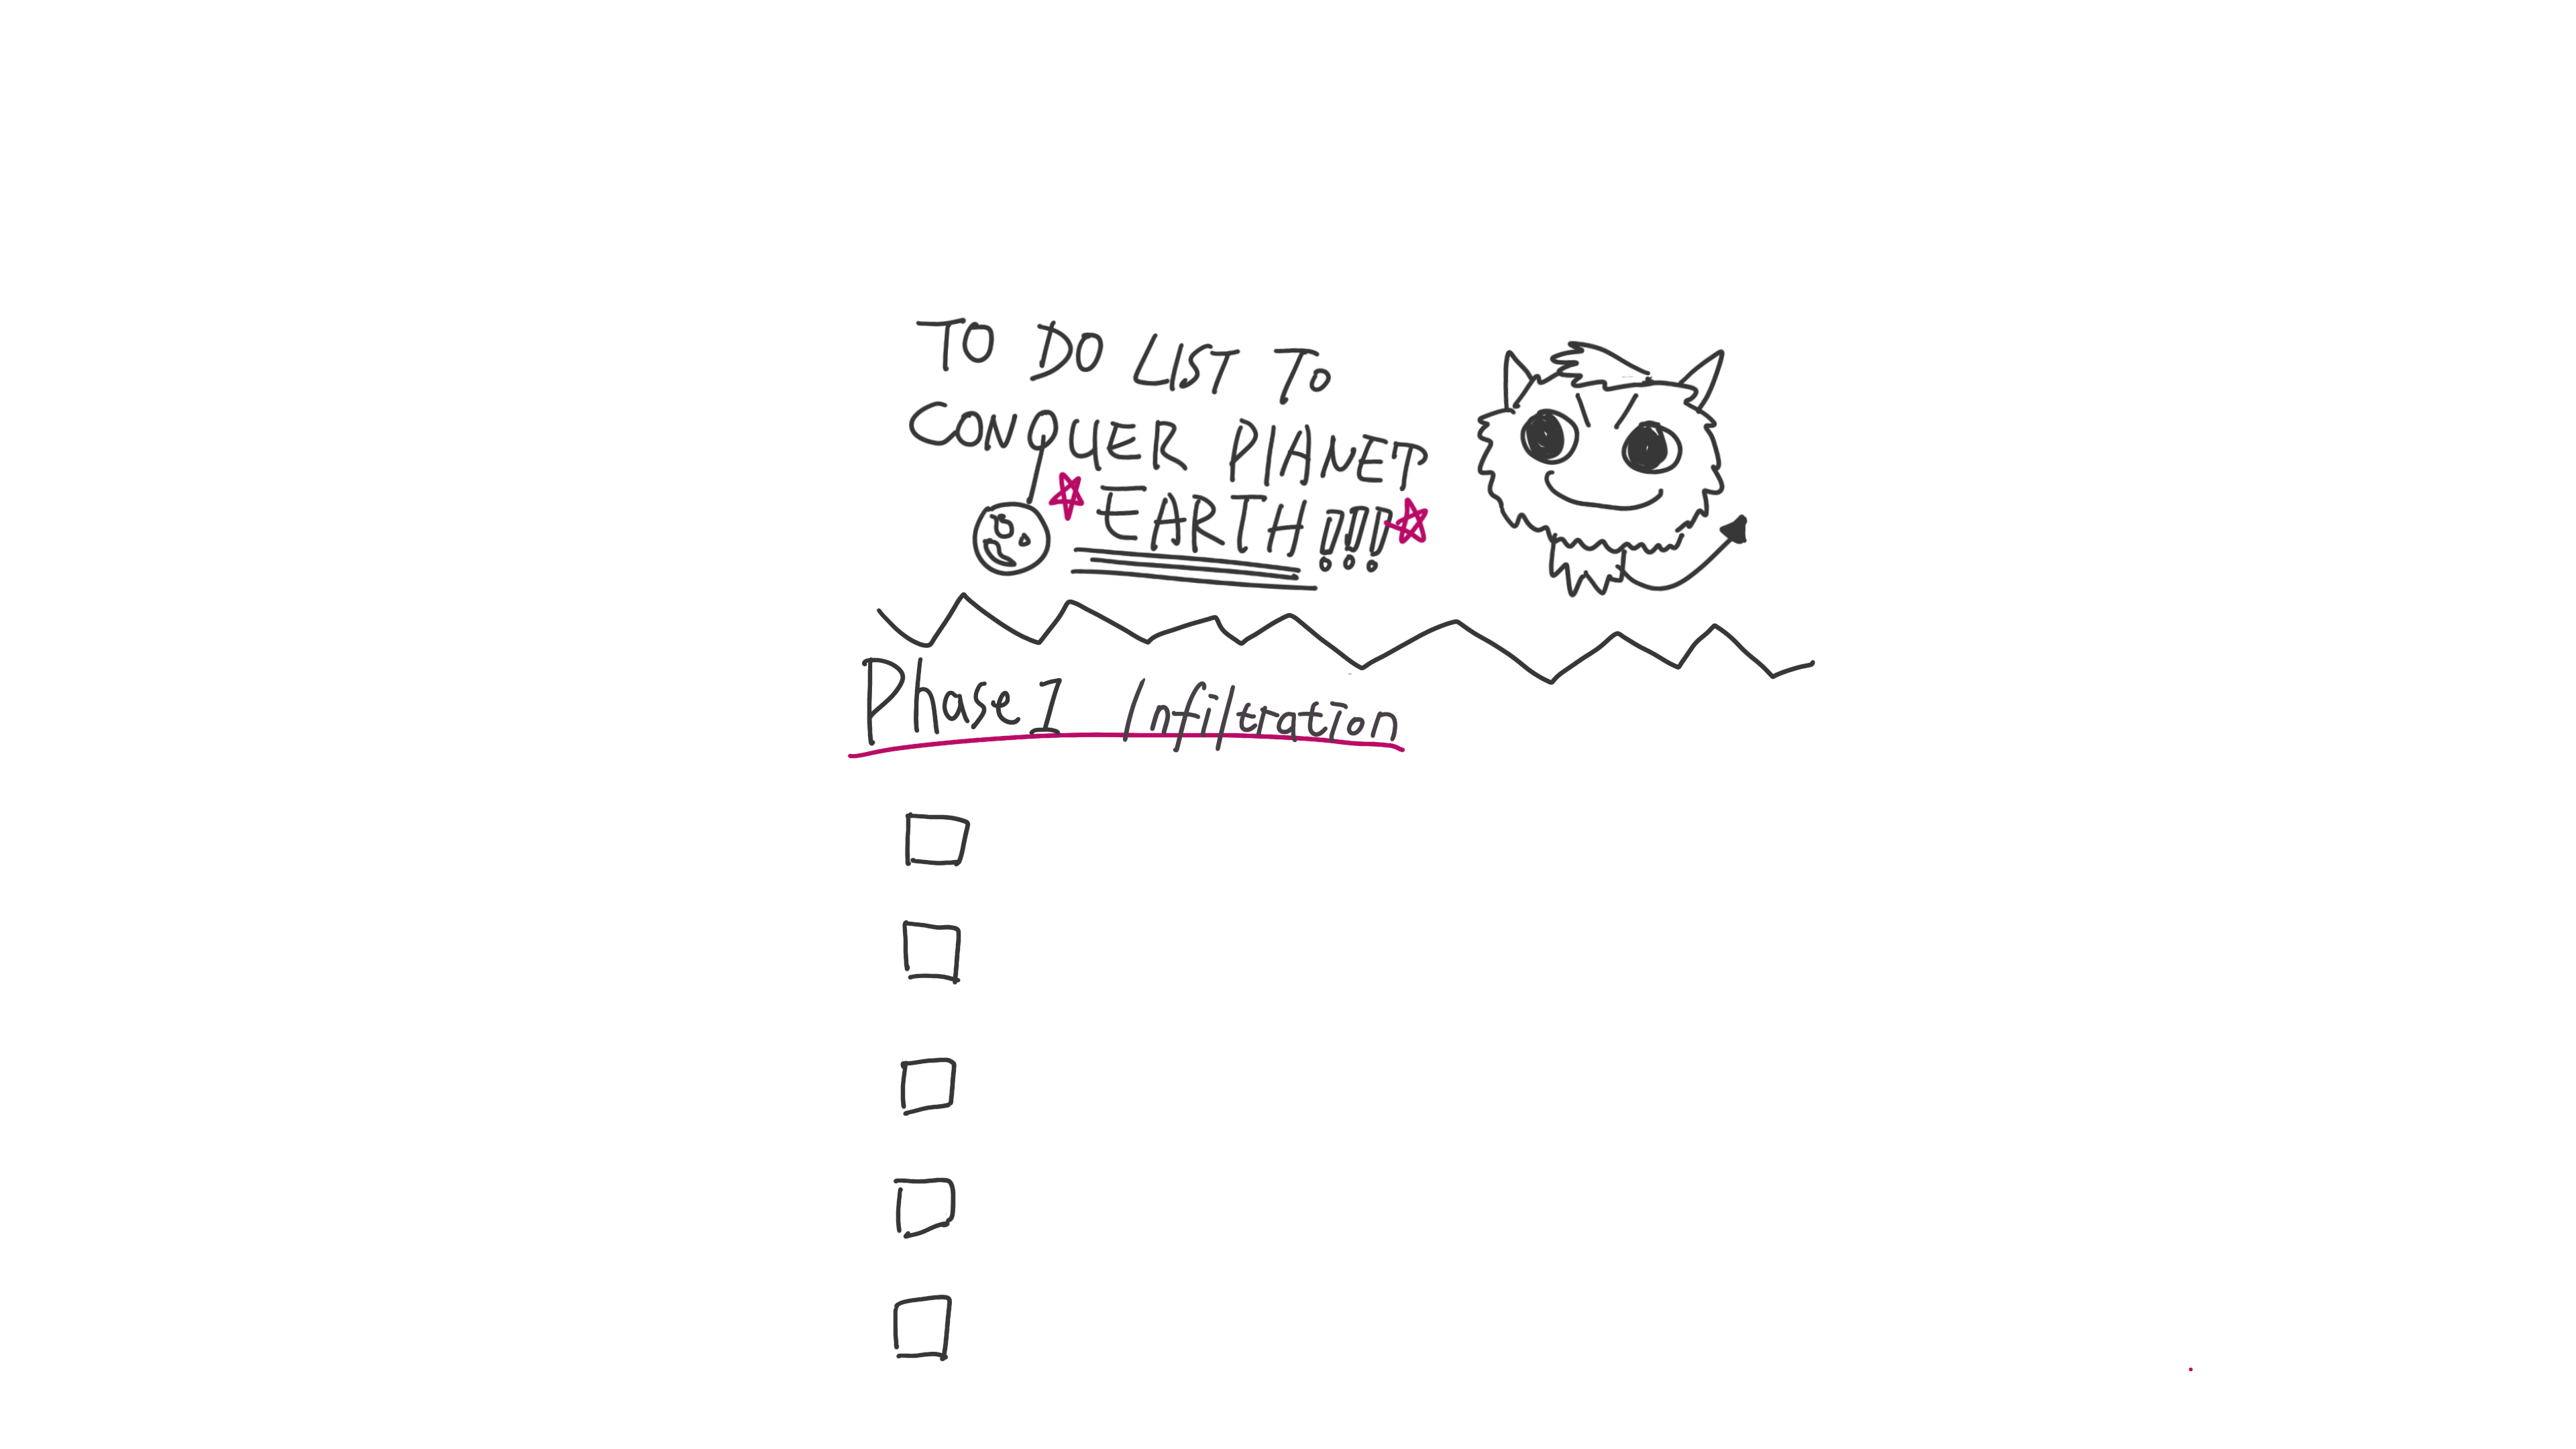 TO DO LIST To
CONQUER PLANET
EARTH!!!
Phase 1 Infiltration